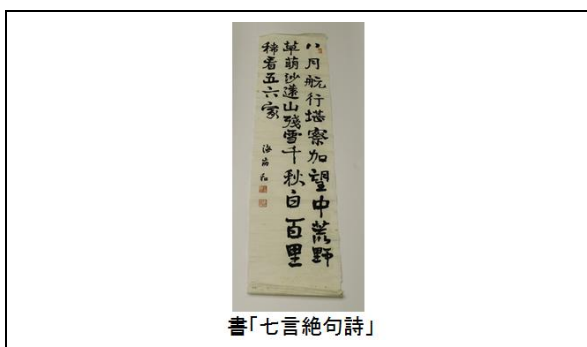 八月航行堪察加望中荒野
草萌沙連山殘雪千秋白百里
稀看五六家
海
書「七言絶句詩」